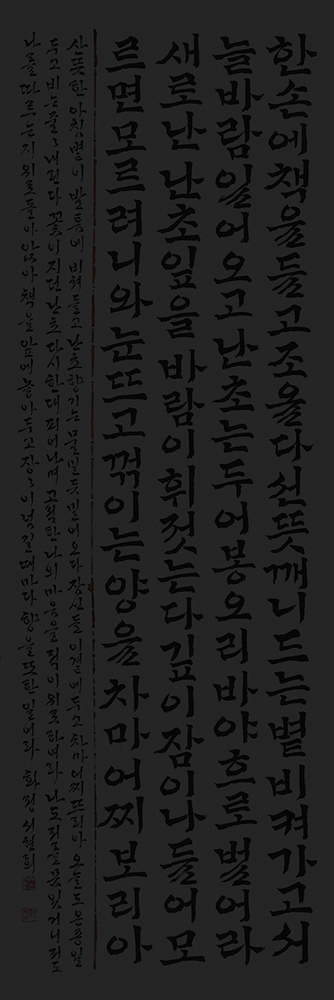 한손에책을들고조올다선뜻깨니드는볕비켜가고서
늘바람일어오고난초는두어봉오리바야흐로벌어라
새로난난초잎을바람이휘젓는다깊이잠이나들어모
르면모르려니와눈뜨고꺾이는양을차마어찌보리아
산뜻한아침볕이발틈에비쳐들고난초향기는물밀듯밀어오다잠신들이곁에두고차마어찌뜨리아오늘도온종일
두고비는줄〻내린다꽃이지던난초다시한대피어나며고적한나의마음을적이위로하여라나도저를못잊거니저도
나를따르는지외로돌아앉아책을앞에놓아두고장〻이넘길때마다향을또한일어라 화정 서현희